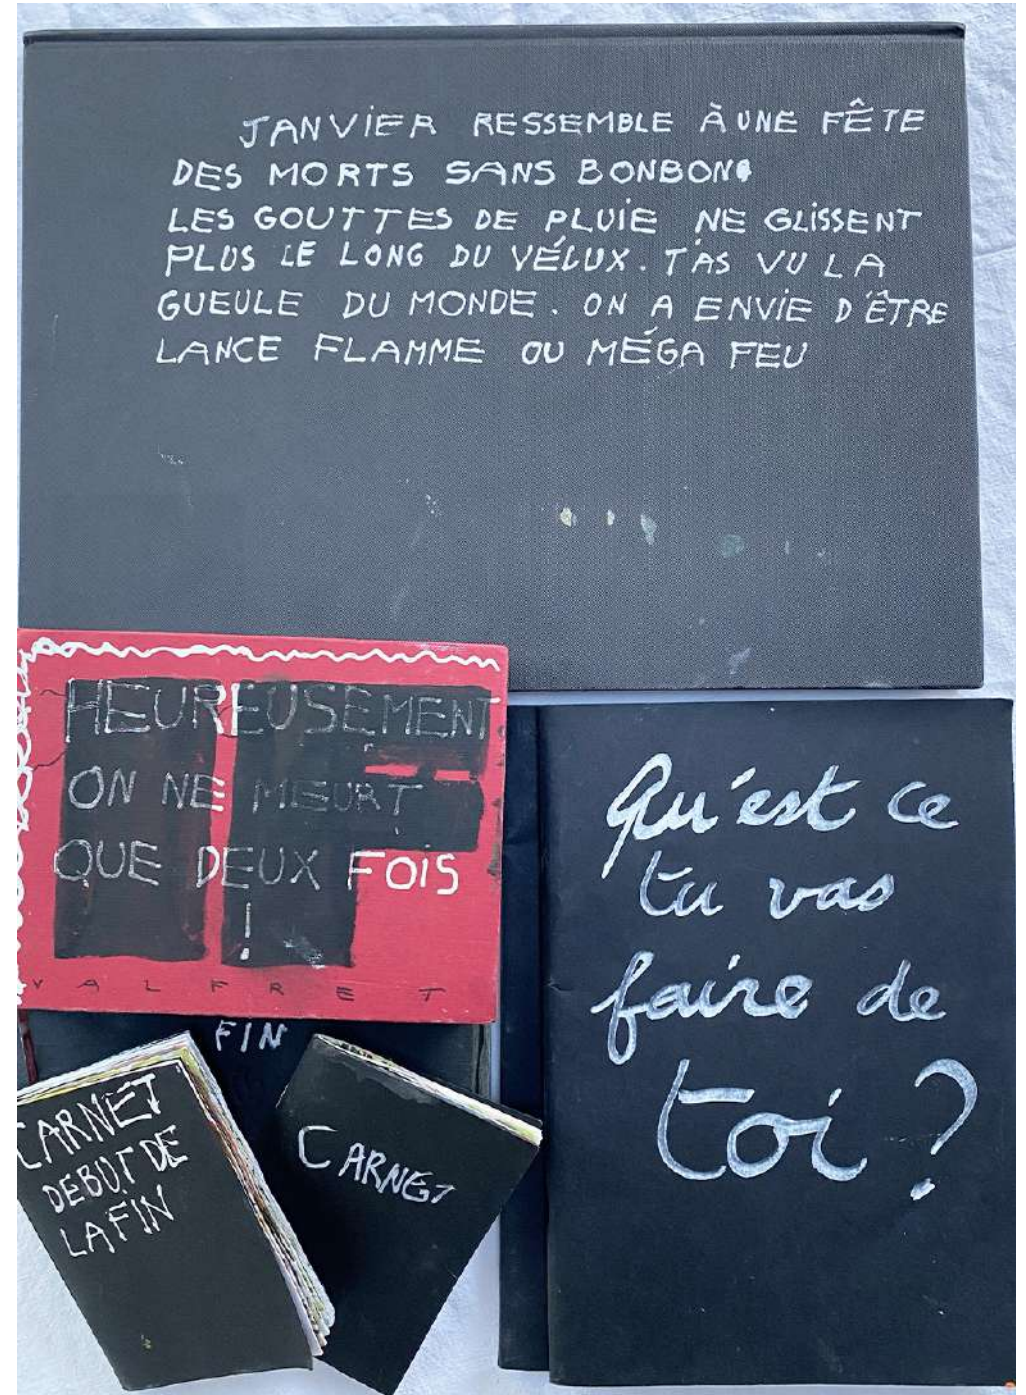 JANVIER RESSEMBLE À UNE FÊTE
DES MORTS SANS BONBON.
LES GOUTTES DE PLUIE NE GLISSENT
PLUS LE LONG DU VÉLUX. T'AS VU LA
GUEULE DU MONDE. ON A ENVIE D'ÊTRE
LANCE FLAMME OU MÉGA FEU
HEUREUSEMENT
ON NE MEURT
QUE DEUX FOIS
!
VALFRET
FIN
CARNET
DEBUT DE
LA FIN
CARNET
Qu'est ce
tu vas
faire de
toi ?